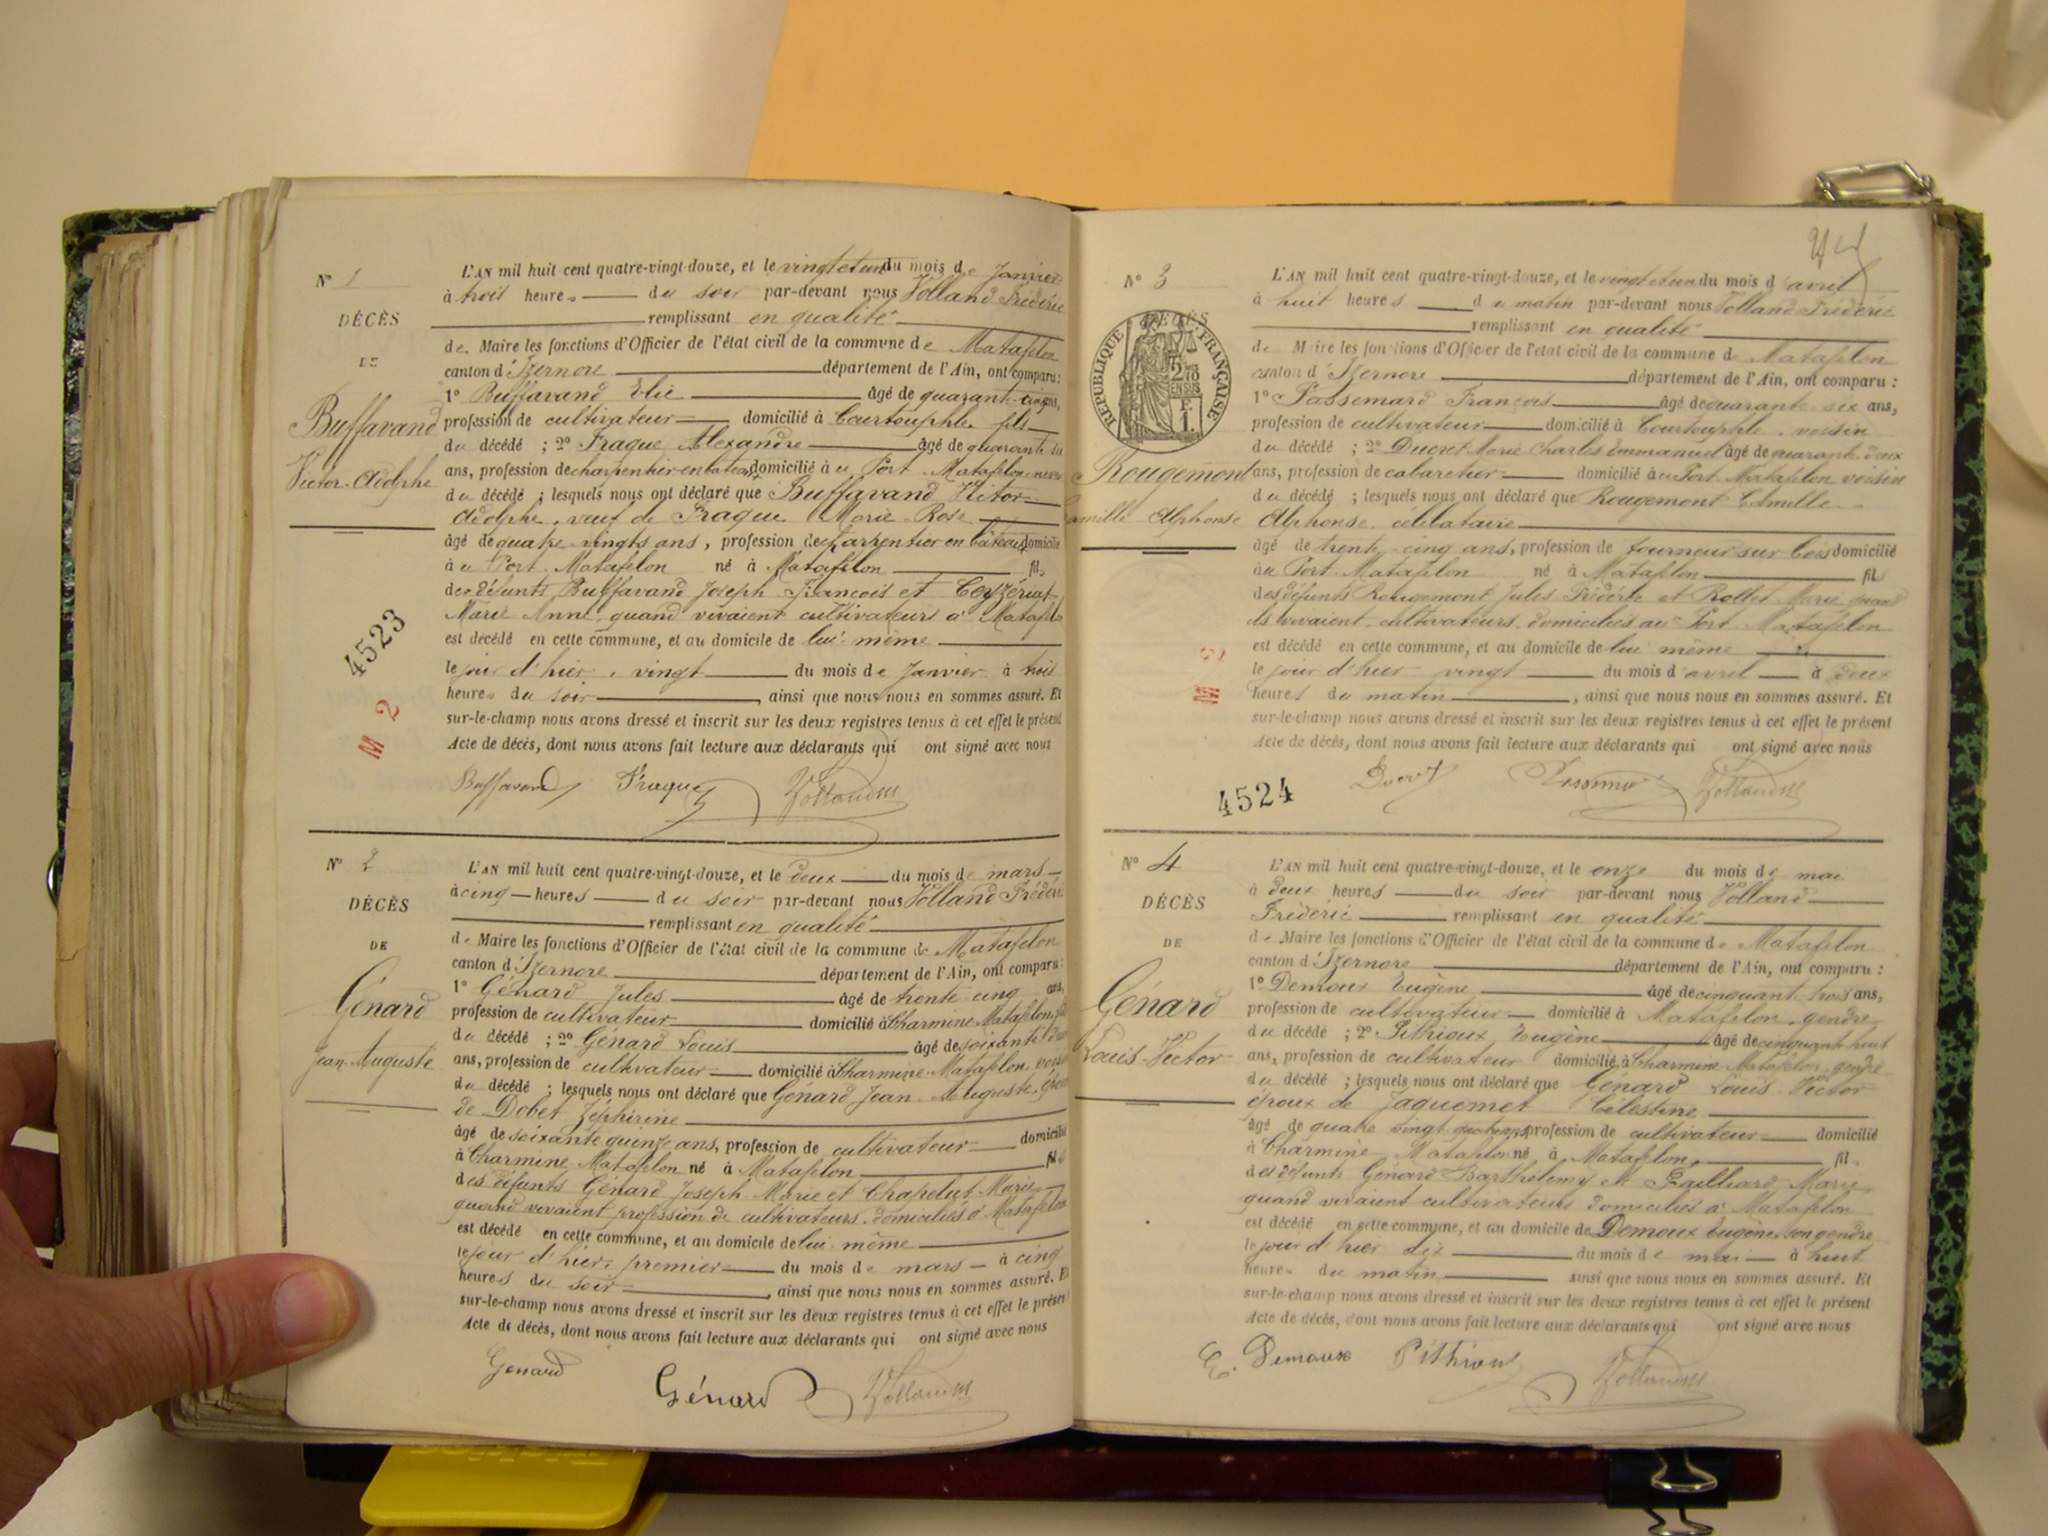 N° 1
DÉCÈS
DE
Buffavand
Victor-Adolphe
4523
M 2
L'AN mil huit cent quatre-vingt-douze, et le vingt et un du mois de Janvier
à trois heures du soir par-devant nous Volland Frédéric
remplissant en qualité
de Maire les fonctions d'Officier de l'état civil de la commune de Matafelon
canton d'Izernore département de l'Ain, ont comparu :
1° Buffavand Elie âgé de quarante cinq ans,
profession de cultivateur domicilié à Courtouphle, fils
du décédé ; 2° Fraque Alexandre âgé de quarante six
ans, profession de charpentier en bateaux domicilié à u Port Matafelon, neveu
du décédé ; lesquels nous ont déclaré que Buffavand Victor
Adolphe, veuf de Fraque Marie Rose
âgé de quatre-vingts ans, profession de charpentier en bateaux domicilié
à u Port Matafelon né à Matafelon fils
des défunts Buffavand Joseph François et Ceyzériat
Marie Anne quand vivaient cultivateurs à Matafelon
est décédé en cette commune, et au domicile de lui-même
le jour d'hier, vingt du mois de Janvier à trois
heures du soir, ainsi que nous nous en sommes assuré. Et
sur-le-champ nous avons dressé et inscrit sur les deux registres tenus à cet effet le présent
Acte de décès, dont nous avons fait lecture aux déclarants qui ont signé avec nous
Buffavand Fraque Volland
N° 2
DÉCÈS
DE
Génard
Jean-Auguste
L'AN mil huit cent quatre-vingt-douze, et le deux du mois de mars
à cinq heures du soir par-devant nous Volland Frédéric
remplissant en qualité
de Maire les fonctions d'Officier de l'état civil de la commune de Matafelon
canton d'Izernore département de l'Ain, ont comparu :
1° Génard Jules âgé de trente cinq ans,
profession de cultivateur domicilié à Charmine Matafelon, fils
du décédé ; 2° Génard Louis âgé de soixante
ans, profession de cultivateur domicilié à Charmine Matafelon, voisin
du décédé ; lesquels nous ont déclaré que Génard Jean Auguste, époux
de Dobet Zéphirine
âgé de soixante quinze ans, profession de cultivateur domicilié
à Charmine Matafelon né à Matafelon fils
des défunts Génard Joseph Marie et Chapelut Marie
quand vivaient profession de cultivateurs domiciliés à Matafelon
est décédé en cette commune, et au domicile de lui-même
le jour d'hier, premier du mois de mars à cinq
heures du soir, ainsi que nous nous en sommes assuré. Et
sur-le-champ nous avons dressé et inscrit sur les deux registres tenus à cet effet le présent
Acte de décès, dont nous avons fait lecture aux déclarants qui ont signé avec nous
Genard Génard Volland
N° 3
DÉCÈS
RÉPUBLIQUE FRANÇAISE
Rougemont
Camille Alphonse
4524
L'AN mil huit cent quatre-vingt-douze, et le vingt et un du mois d'avril
à huit heures du matin par-devant nous Volland Frédéric
remplissant en qualité
de Maire les fonctions d'Officier de l'état civil de la commune de Matafelon
canton d'Izernore département de l'Ain, ont comparu :
1° Passemard François âgé de quarante-six ans,
profession de cultivateur domicilié à Courtouphle, voisin
du décédé ; 2° Ducret Marie Charles Emmanuel âgé de quarante deux
ans, profession de cabaretier domicilié à u Port Matafelon voisin
du décédé ; lesquels nous ont déclaré que Rougemont Camille
Alphonse, célibataire
âgé de trente-cinq ans, profession de tourneur sur bois domicilié
à u Port Matafelon né à Matafelon fils
des défunts Rougemont Jules Frédéric et Rollet Marie quand
ils vivaient cultivateurs domiciliés au Port Matafelon
est décédé en cette commune, et au domicile de lui même
le jour d'hier vingt du mois d'avril à deux
heures du matin, ainsi que nous nous en sommes assuré. Et
sur-le-champ nous avons dressé et inscrit sur les deux registres tenus à cet effet le présent
Acte de décès, dont nous avons fait lecture aux déclarants qui ont signé avec nous
Ducret Volland
N° 4
DÉCÈS
DE
Génard
Louis-Victor
L'AN mil huit cent quatre-vingt-douze, et le onze du mois de mai
à deux heures du soir par-devant nous Volland
Frédéric remplissant en qualité
de Maire les fonctions d'Officier de l'état civil de la commune de Matafelon
canton d'Izernore département de l'Ain, ont comparu :
1° Demoux Eugène âgé de cinquante trois ans,
profession de cultivateur domicilié à Matafelon, gendre
du décédé ; 2° Pithioux Eugène âgé de cinquante huit
ans, profession de cultivateur domicilié à Charmine Matafelon, gendre
du décédé ; lesquels nous ont déclaré que Génard Louis Victor
époux de Jaquemet Célestine
âgé de quatre vingt quatorze, profession de cultivateur domicilié
à Charmine Matafelon né à Matafelon, fils
des défunts Génard Barthélemy et Gailliard Marie
quand vivaient cultivateurs domiciliés à Matafelon
est décédé en cette commune, et au domicile de Demoux Eugène son gendre
le jour d'hier dix du mois de mai à huit
heures du matin ainsi que nous nous en sommes assuré. Et
sur-le-champ nous avons dressé et inscrit sur les deux registres tenus à cet effet le présent
Acte de décès, dont nous avons fait lecture aux déclarants qui ont signé avec nous
E. Demoux Pithioux Volland